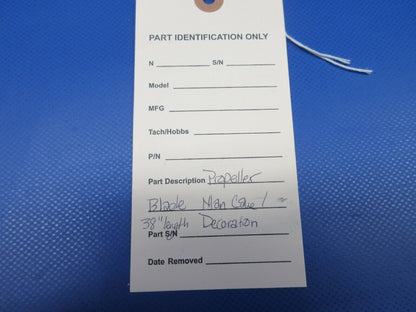 PART IDENTIFICATION ONLY
N __________ S/N __________
Model __________
MFG __________
Tach/Hobbs __________
P/N __________
Part Description Propeller
Blade Man Cave /
38" length Decoration
Part S/N __________
Date Removed __________